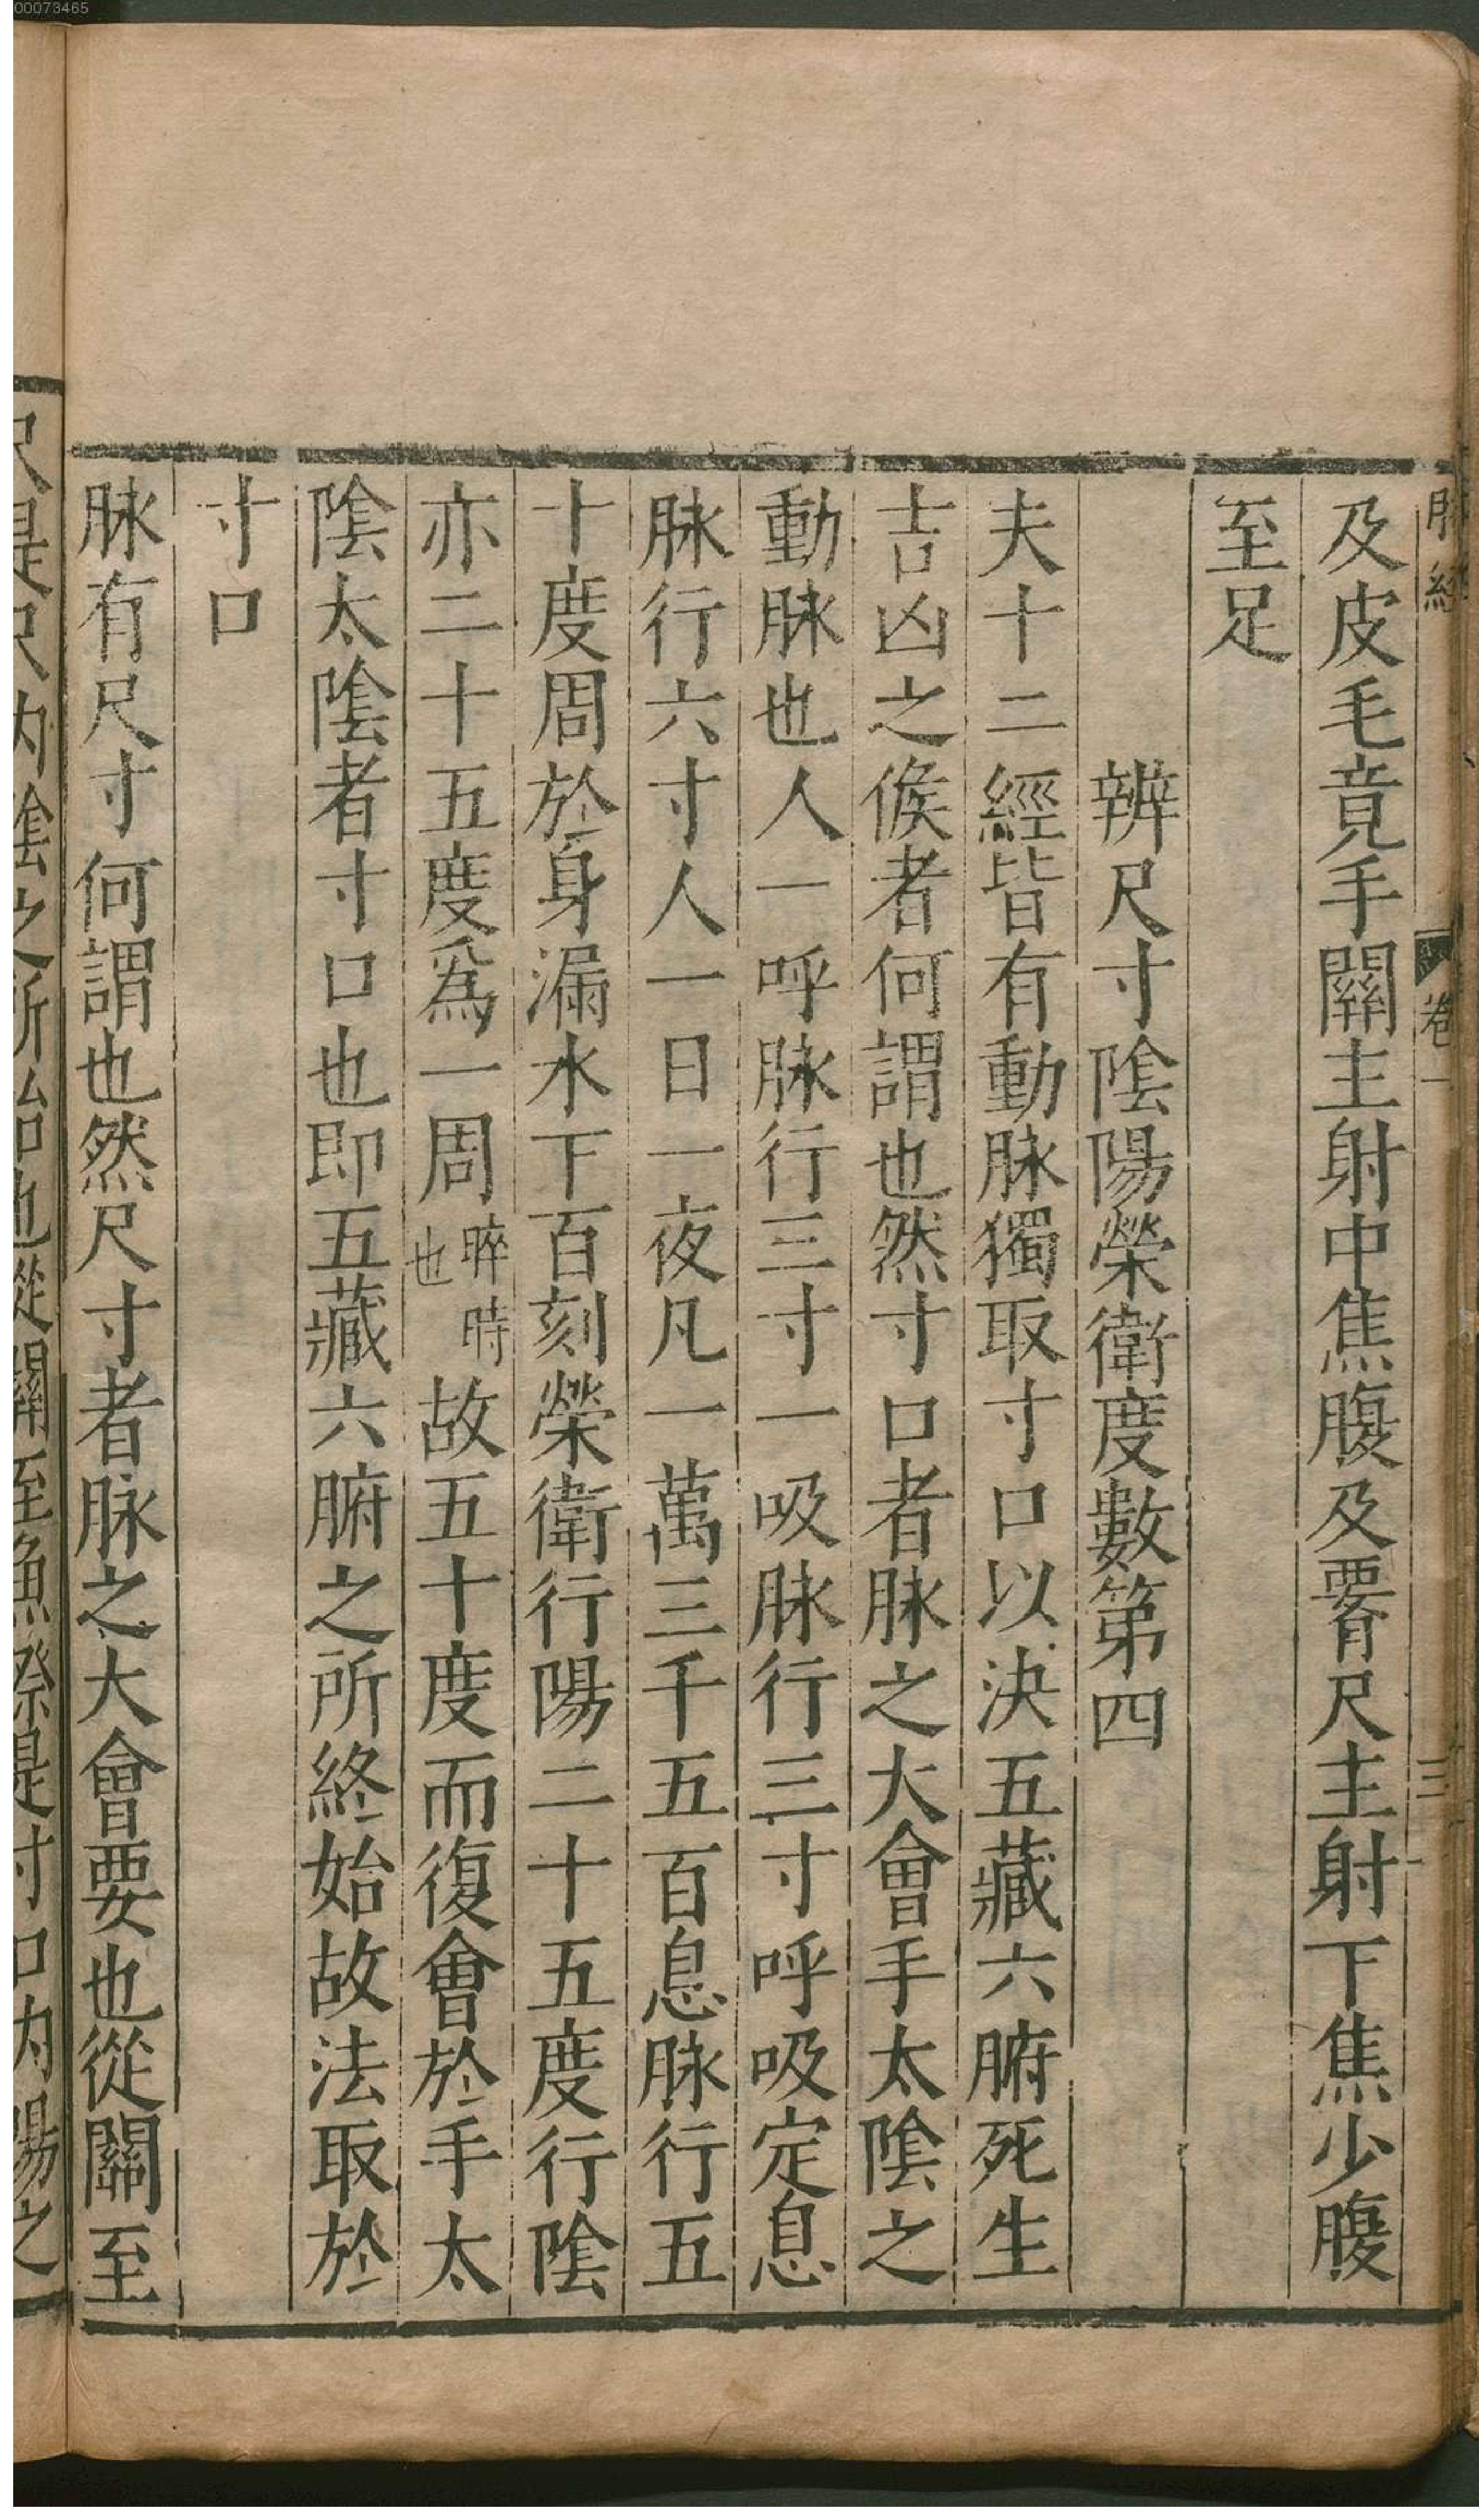 00073465
脉經
卷一
三
及皮毛竟手關主射中焦腹及𦝫尺主射下焦少腹
至足
辨尺寸陰陽榮衛度數第四
夫十二經皆有動脉獨取寸口以決五藏六腑死生
吉凶之候者何謂也然寸口者脉之大會手太陰之
動脉也人一呼脉行三寸一吸脉行三寸呼吸定息
脉行六寸人一日一夜凡一萬三千五百息脉行五
十度周於身漏水下百刻榮衛行陽二十五度行陰
亦二十五度爲一周晬時也故五十度而復會於手太
陰太陰者寸口也即五藏六腑之所終始故法取於
寸口
脉有尺寸何謂也然尺寸者脉之大會要也從關至
尺是尺内陰之所治也從關至魚際是寸口内陽之